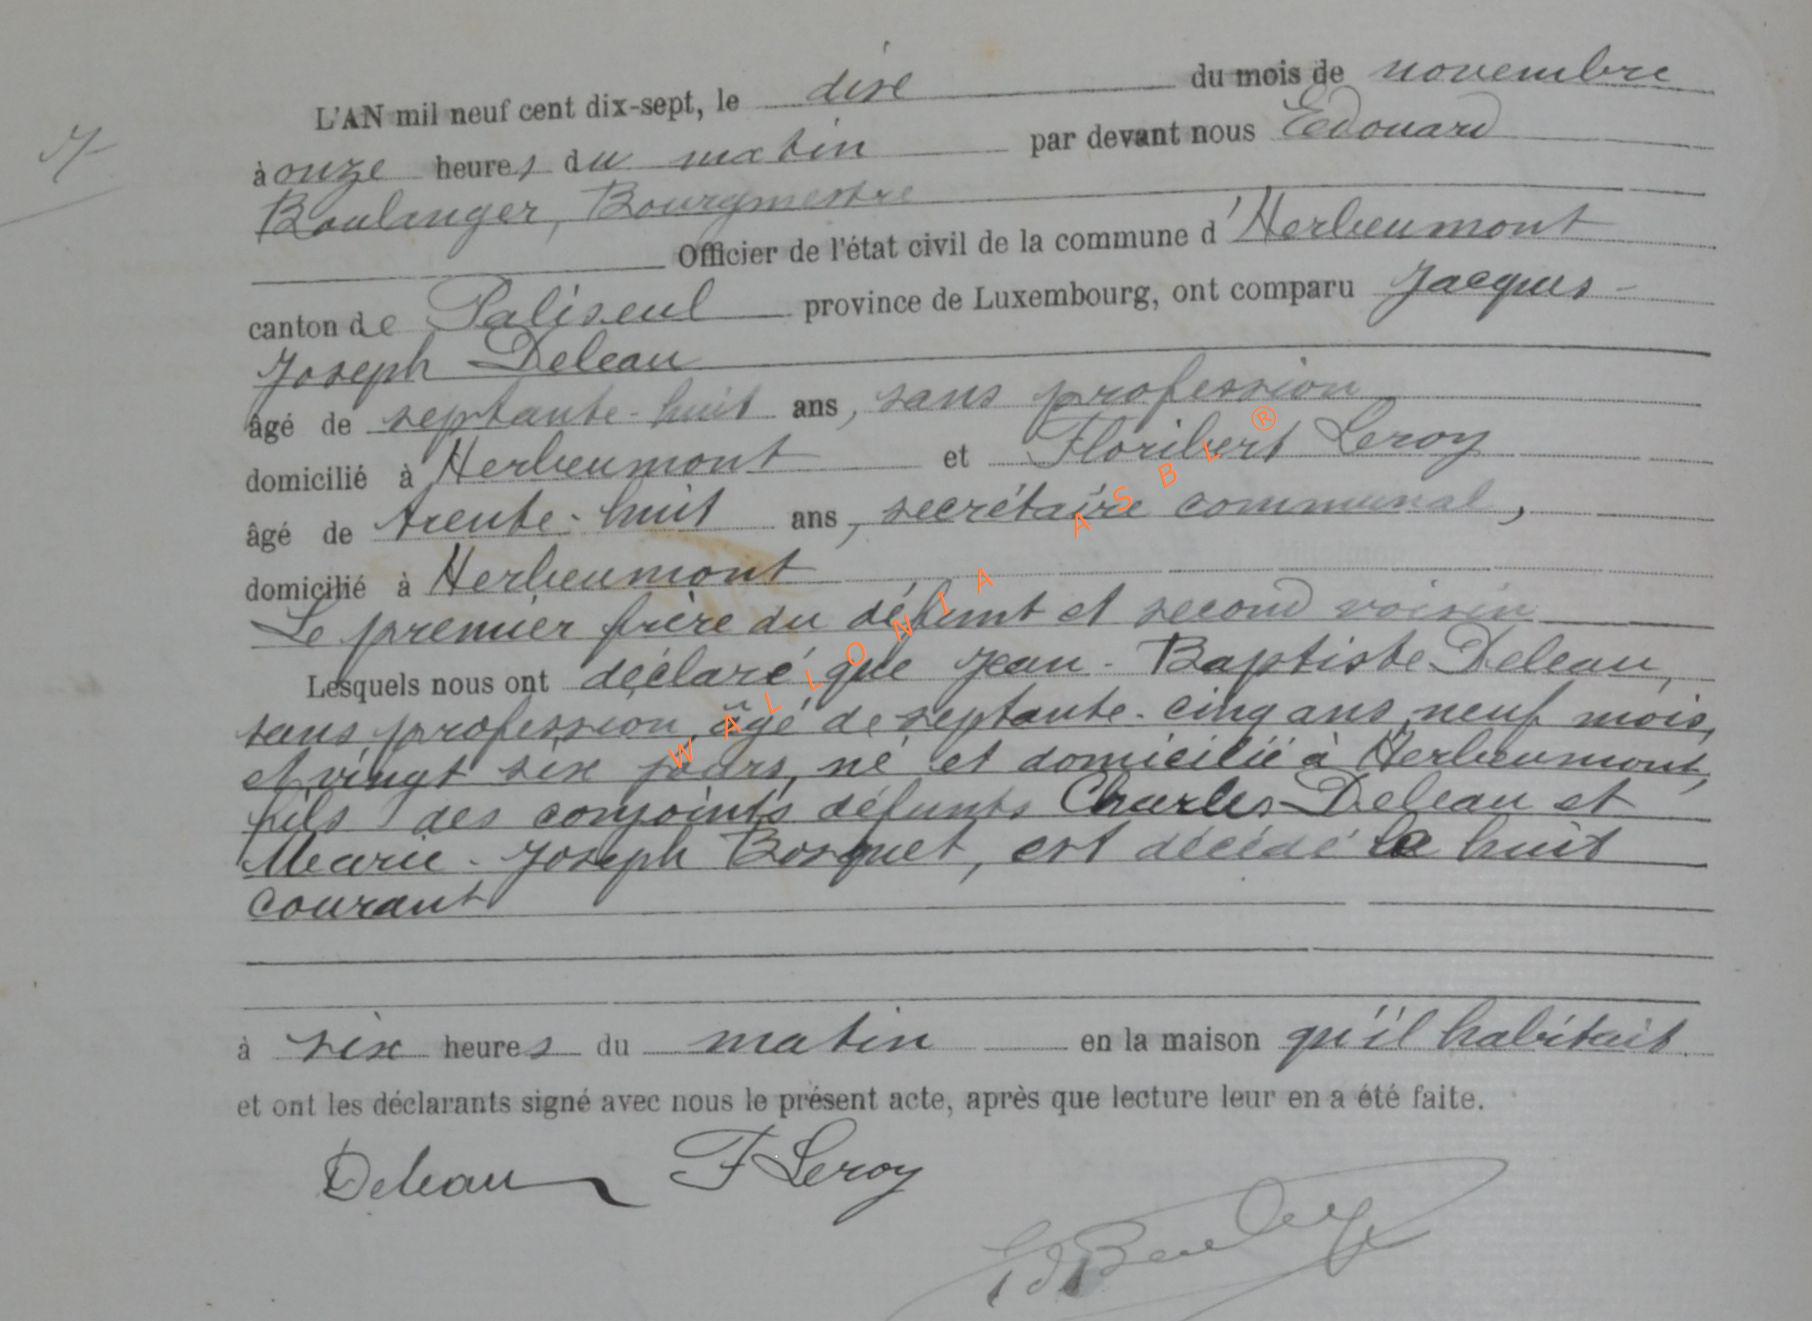 L'AN mil neuf cent dix-sept, le dixe du mois de novembre
à onze heures du matin par devant nous Edouard
Boulanger, Bourgmestre
Officier de l'état civil de la commune d'Herbeumont
canton de Paliseul province de Luxembourg, ont comparu Jacques-
Joseph Deleau
âgé de septante-huit ans, sans profession
domicilié à Herbeumont et Floribert Leroy
âgé de trente-huit ans, secrétaire communal,
domicilié à Herbeumont
Le premier frère du défunt et second voisin
Lesquels nous ont déclaré que Jean-Baptiste Deleau,
sans profession, âgé de septante-cinq ans, neuf mois,
et vingt six jours, né et domicilié à Herbeumont,
fils des conjoints défunts Charles Deleau et
Marie-Joseph Bosquet, est décédé le huit
courant
à six heures du matin en la maison qu'il habitait
et ont les déclarants signé avec nous le présent acte, après que lecture leur en a été faite.
Deleau F Leroy
Ed Boulanger
WALLONIA ASBL ®